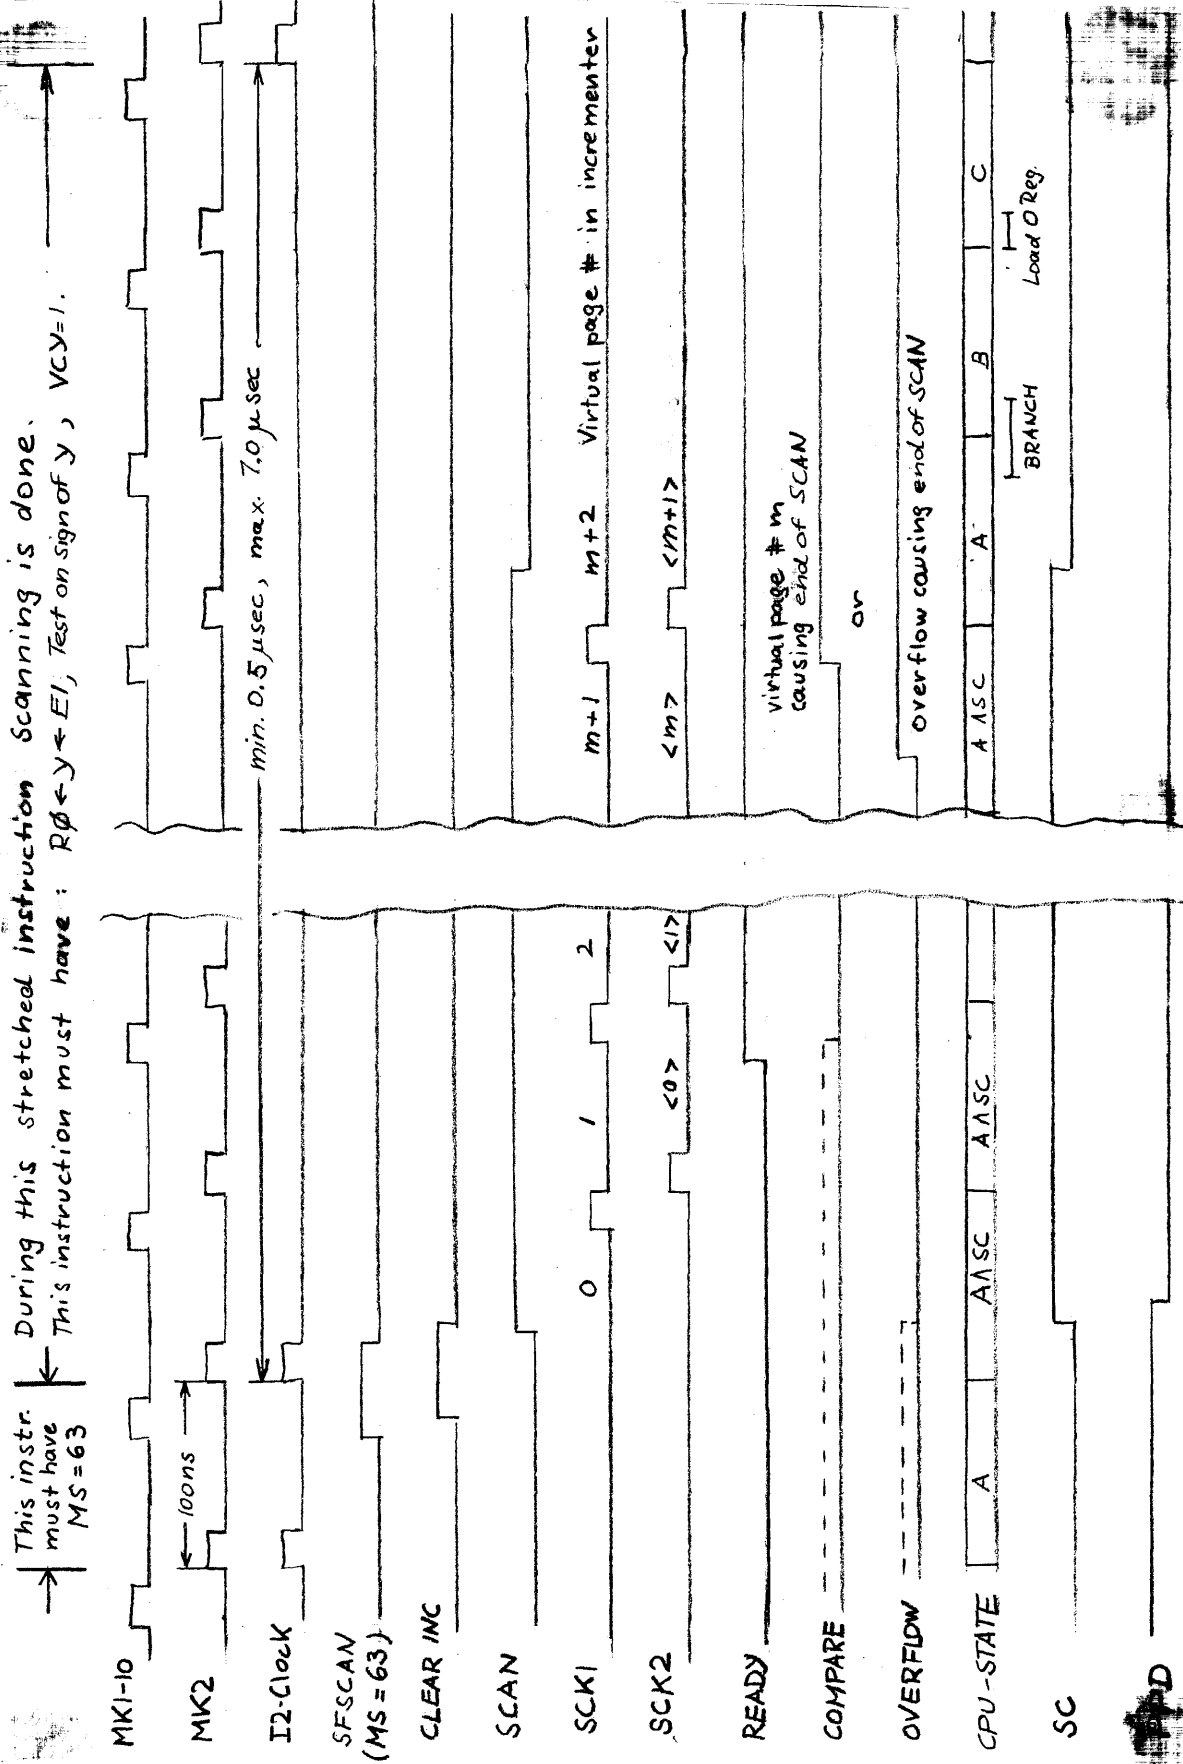 This instr.
must have
MS=63
During this stretched instruction Scanning is done.
This instruction must have : RØ←y←EI, Test on sign of y, VCY=1.
MK1-10
MK2
100ns
I2-Clock
min. 0.5 μsec, max. 7.0 μsec
SFSCAN
(MS=63)
CLEAR INC
SCAN
SCK1
0 1 2 m+1 m+2 Virtual page # in incrementer
SCK2
<0> <1> <m> <m+1>
READY
virtual page # m
causing end of SCAN
COMPARE
or
OVERFLOW
overflow causing end of SCAN
CPU-STATE
A A∧SC A∧SC A∧SC A B C
BRANCH
Load O Reg.
SC